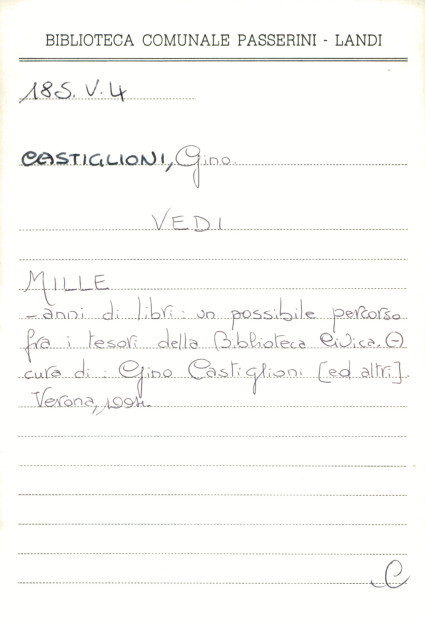 BIBLIOTECA COMUNALE PASSERINI - LANDI
18S. V. 4
CASTIGLIONI, Gino.
VEDI
MILLE
- anni di libri: un possibile percorso
fra i tesori della Biblioteca Civica. (-)
cura di: Gino Castiglioni [ed altri].
Verona, 1994.
C